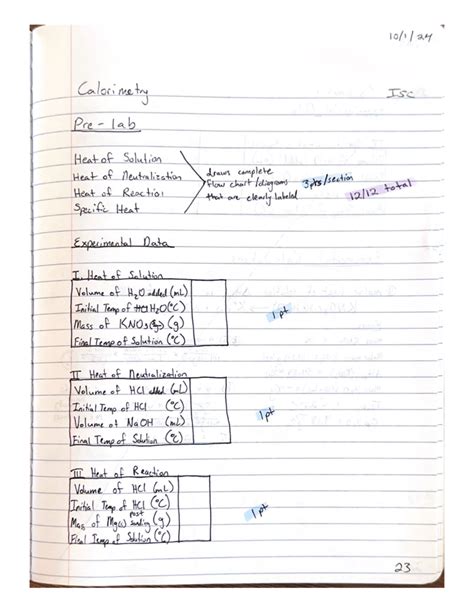 10/1/24
Calorimetry
ISC
Pre-lab
Heat of Solution
Heat of Neutralization
Heat of Reaction
Specific Heat
draws complete
flow chart/diagrams
that are clearly labeled
3pts/section
12/12 total
Experimental Data
I. Heat of Solution
Volume of H₂O added (mL)
Initial Temp of H₂O (°C)
Mass of KNO₃(s) (g)
Final Temp of Solution (°C)
1 pt
II Heat of Neutralization
Volume of HCl added (mL)
Initial Temp of HCl (°C)
Volume of NaOH (mL)
Final Temp of Solution (°C)
1 pt
III Heat of Reaction
Volume of HCl (mL)
Initial Temp of HCl (°C)
Mass of Mg(s) post sanding (g)
Final Temp of Solution (°C)
1 pt
23